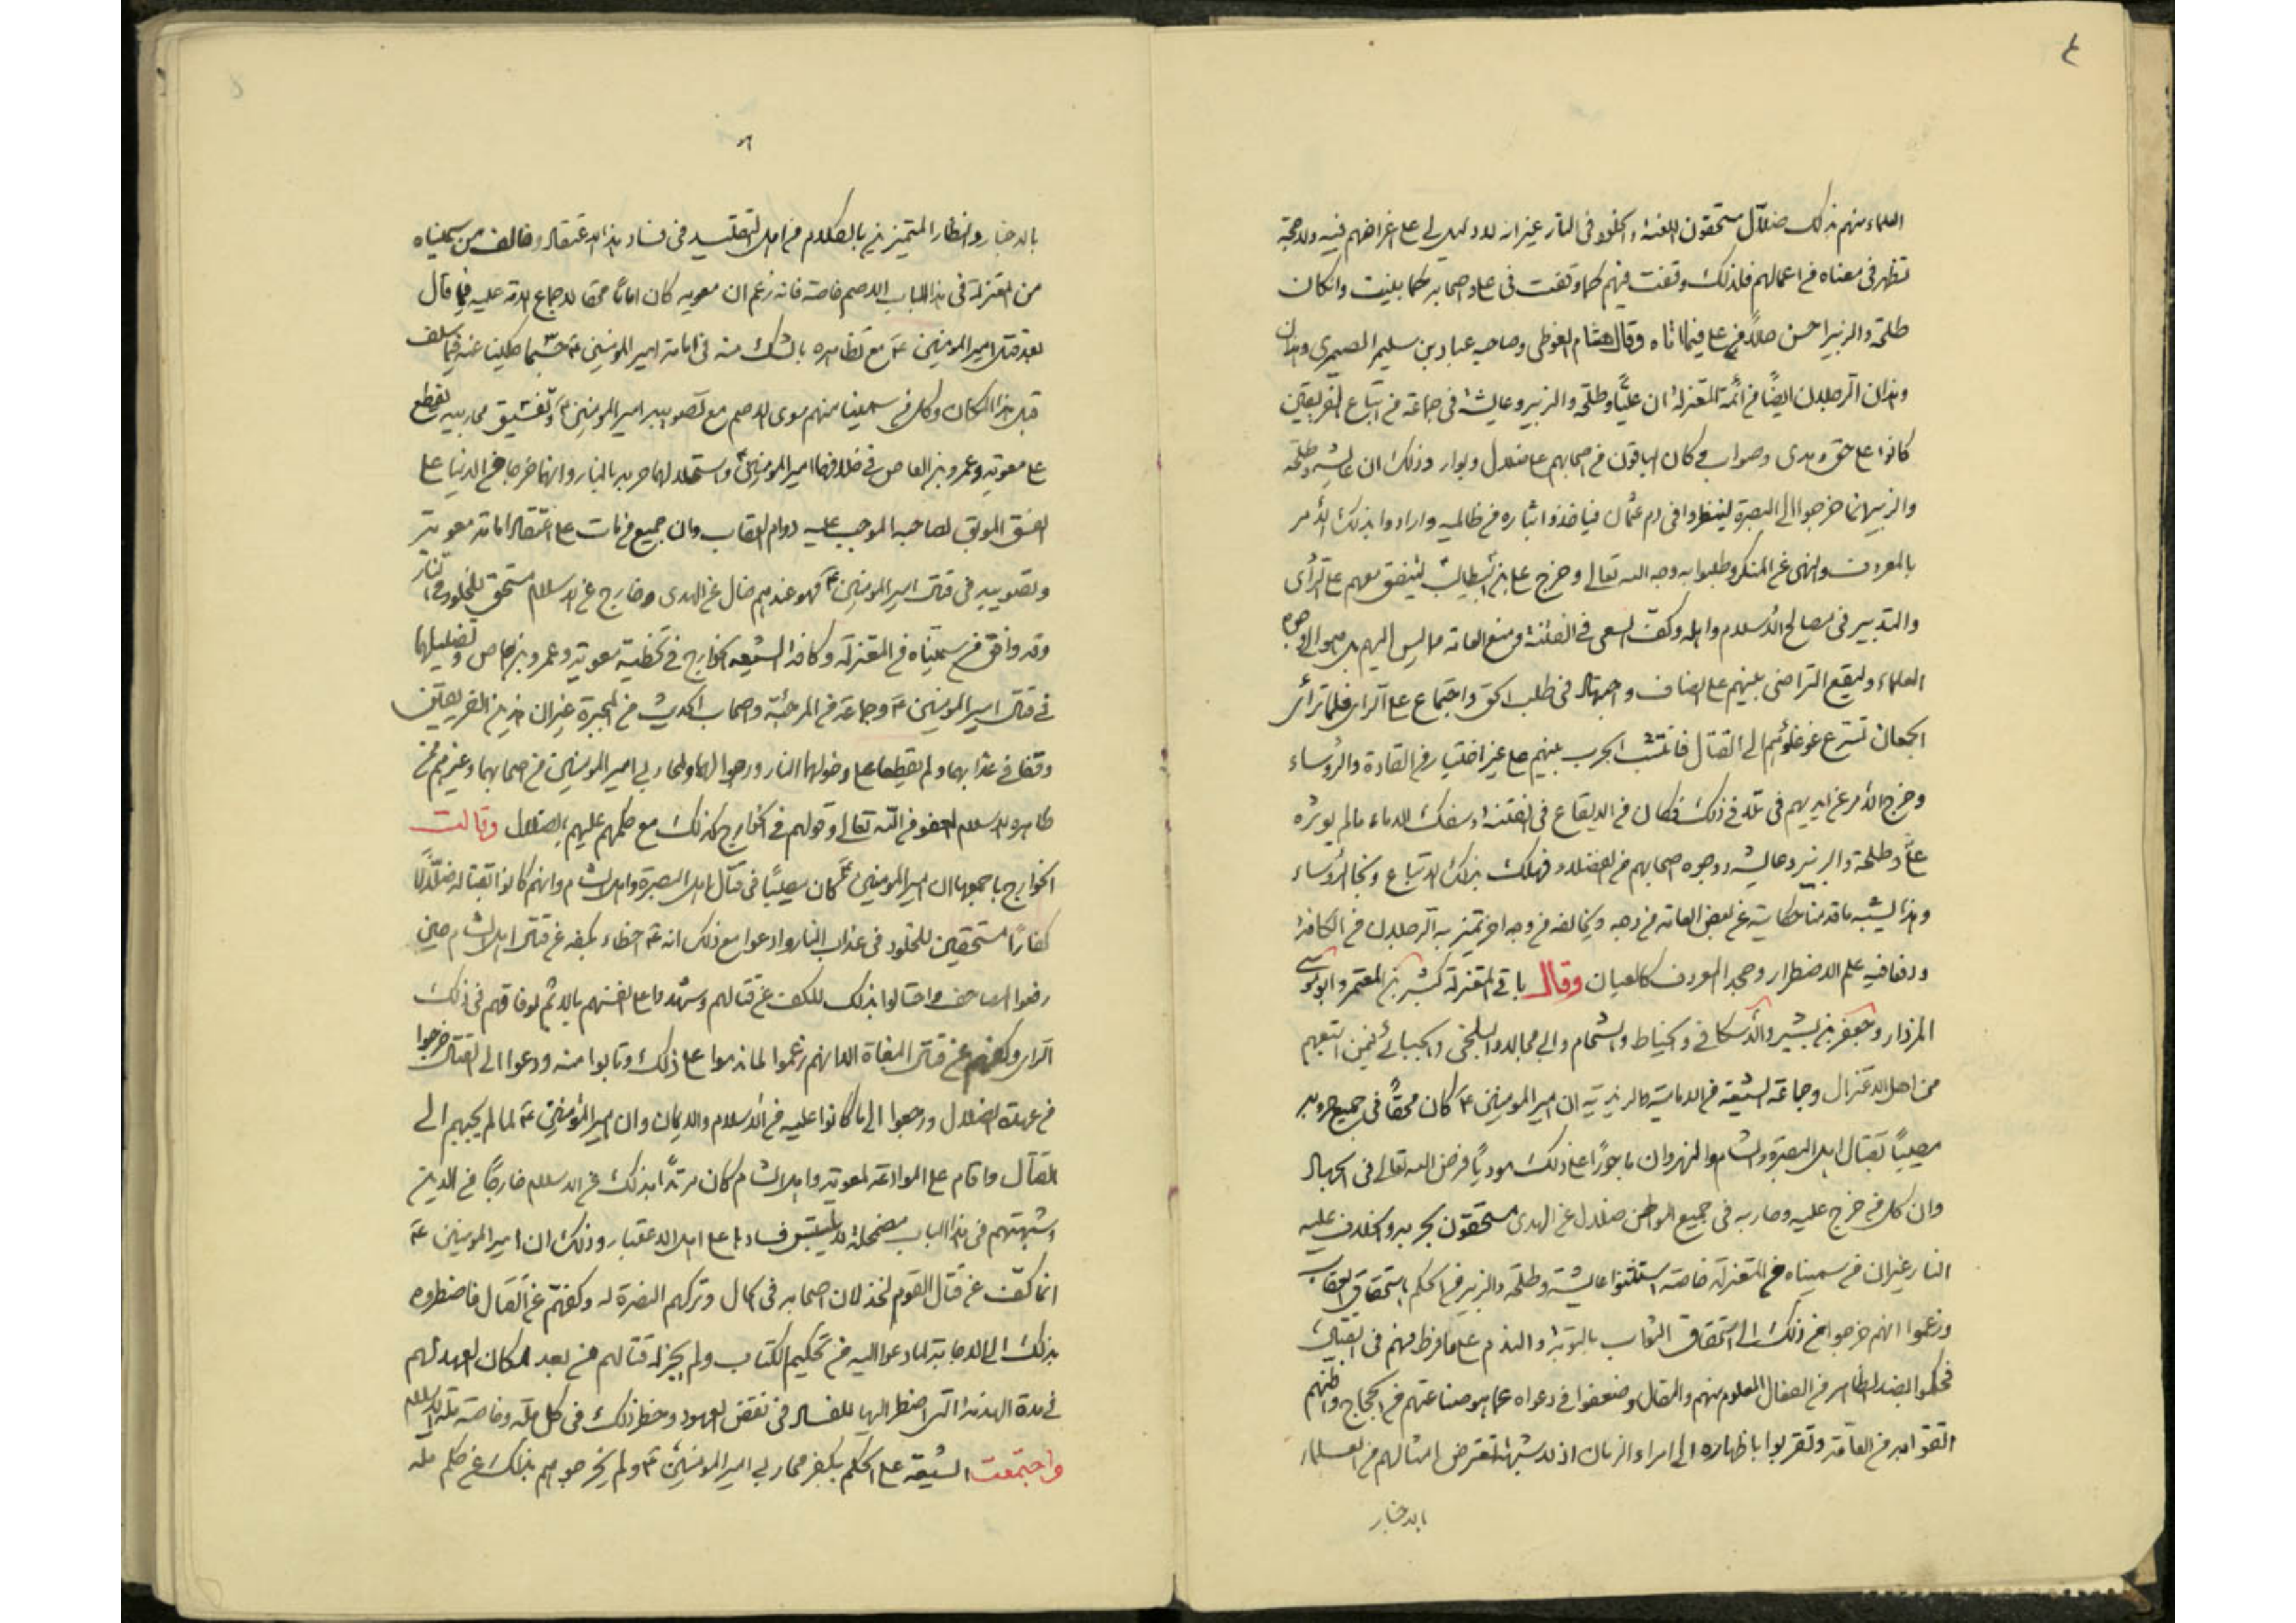 ٤
العلماء منهم بذلك ضلاّل مستحقون اللعنة والخلود فى النار غير انه لا دليل لى على اغراضهم فيه ولا حجة
تظهر فى معناه من اعمالهم فلذلك وقفت فيهم كما وقفت فى على واصحابه كما بينت وان كان
طلحة والزبير احسن حالاً من على فيما اتاه وقال هشام الفوطى وصاحبه عباد بن سليمر الصيمرى وهذان
وهذان الرجلان ايضًا من أئمة المعتزلة ان عليًّا وطلحة والزبير وعايشة فى جماعة من اتباع الفريقين
كانوا على حق وهدى وصواب وكان الباقون من اصحابهم على ضلال وبوار وذلك ان عايشة وطلحة
والزبير انما خرجوا الى البصرة لينظروا فى دم عثمان فياخذوا بثاره من ظالميه وارادوا بذلك الأمر
بالمعروف والنهى عن المنكر وطلبوا به وجه الله تعالى وخرج على بن أبيطالب ليتفق معهم على الرأى
والتدبير فى مصالح الأسلام واهله وكفّ السعى فى الفتنة ومنع العامة مما ليس اليهم بل هو الى وجوه
العلماء وليقع التراضى بينهم على انصاف واجتهاد فى طلب الحق واجتماع على الراى فلما ترأى
الجمعان تسرع غوغاؤهم الى القتال فانتشب الحرب بينهم على غير اختيار من القادة والرؤساء
وخرج الأمر عن ايديهم فى تلافى ذلك فكان من الايقاع فى الفتنة وسفك الدماء مالم يوثره
علىّ وطلحة والزبير وعايشه ووجوه اصحابهم من الفضلاء فهلك بذلك الاتباع ونجا الرؤساء
وهذا يشبه ماقدمنا حكايته عن بعض العامة من وجه ويخالفه من وجه اخر تميز به الرجلان من الكافة
ودفعا فيه علم الاضطرار وجحدا المعروف كالعيان وقال باقى المعتزلة كبشر بن المعتمر وابو موسى
المزدار وجعفر بن بشير والأسكافى والخياط والشحام وابى مجالد والبلخى والجبائى فيمن اتبعهم
من اهل الاعتزال وجماعة الشيعة من الامامية والزيدية ان امير المومنين ع كان محقًّا فى جميع حروبه
مصيبًا بقتال اهل البصرة والشام والنهروان ماجورًا على ذلك موديًا فرض الله تعالى فى الجهاد
وان كل من خرج عليه وحاربه فى جميع المواطن ضلال عن الهدى مستحقون بحربه والخلاف عليه
النار غير ان من سميناه من المعتزله خاصة استثنوا عايشة وطلحة والزبير من الحكم باستحقاق العقاب
وزعموا انهم خرجوا من ذلك الى استحقاق الثواب بالتوبة والندم على ما فرط منهم فى القتال
فحكموا بضد الظاهر من الفعال المعلوم منهم والمقال وضعفوا فى دعواه عما هو صناعتهم من الحجاج واظنهم
اتقوا به من العامّة وتقربوا باظهاره الى امراء الزمان اذ لا شبهة تعترض امثالهم من العلماء
بالاخبار
بالاخبار والنظار المتميزين بالكلام من اهل التقليد فى فساد هذا الاعتقاد وخالف من سميناه
من المعتزلة فى هذا الباب الاصم خاصة فانه زعم ان معويه كان امامًا محقا لاجماع الامة عليه فيما قال
بعد قتل امير المومنين عَ مع تظاهره بالشك منه فى امامة امير المؤمنين عَ حسبما حكينا عنه فيما سلف
قبل هذا المكان وكل من سمينا منهم سوى الاصم مع تصويبه امير المومنين عَ وتفسيق محاربيه يقطع
على معويه وعمرو بن العاص فى خلافهما امير المومنين عَ واستحلالهما حربه بالنار وانهما خرجا من الدنيا على
الفسق الموبق لصاحبه الموجب عليه دوام العقاب وان جميع من مات على اعتقاد امامة معويه
وتصويبه فى قتال امير المومنين عَ فهو عندهم ضال عن الهدى وخارج عن الاسلام مستحق للخلود فى النار
وقد وافق من سميناه من المعتزله وكافة الشيعه الخوارج فى تخطية معويه وعمرو بن العاص وتضليلهما
فى قتال امير المومنين عَ وجماعة من المرجئة واصحاب الحديث من المجبرة غير ان هذين الفريقين
وقفا فى عذابهما ولم يقطعا على دخولهما النار ورجوا لهما ولمحاربى امير المومنين من اصحابهما وغيرهم ممن
ظاهره الاسلام العفو من الله تعالى وقولهم فى الخوارج كذلك مع حكمهم عليهم بالضلال وقالت
الخوارج باجمعها ان امير المومنين عَ كان مصيبًا فى قتال اهل البصرة واهل الشام وانهم كانوا بقتاله ضلالًا
كفارًا مستحقين للخلود فى عذاب النار وادعوا مع ذلك انه عَ اخطاء بكفه عن قتال اهل الشام حين
رفعوا المصاحف واحتالوا بذلك للكف عن قتالهم وشهدوا على انفسهم بالاثم لوفاقهم فى ذلك
الراى وكفهم عن قتال البغاة الا انهم زعموا لما ندموا على ذلك وتابوا منه ودعوا الى القتال خرجوا
من عهدة الضلال ورجعوا الى ما كانوا عليه من الأسلام والايمان وان امير المؤمنين عَ لما لم يجبهم الى
القتال واقام على الموادعة لمعويه واهل الشام كان مرتدًّا بذلك عن الاسلام خارجًا من الدين
وشبهتهم فى هذا الباب مضمحلة لا يلتبس فسادها على اهل الاعتبار وذلك ان امير المومنين عَ
انما كفّ عن قتال القوم لخذلان اصحابه فى الحال وتركهم النصرة له وكفهم عن القتال فاضطروه
بذلك الى الاجابة لما دعوا اليه من تحكيم الكتاب ولم يجز له قتالهم من بعد لمكان العهد لهم
فى مدة الهدنة التى اضطر اليها للفساد فى نقض العهود وحظر ذلك فى كل ملة وخاصة ملة الاسلام
واجتمعت الشيعه على الحكم بكفر محاربى امير المومنين عَ ولم يخرجوهم بذلك عن حكم ملة